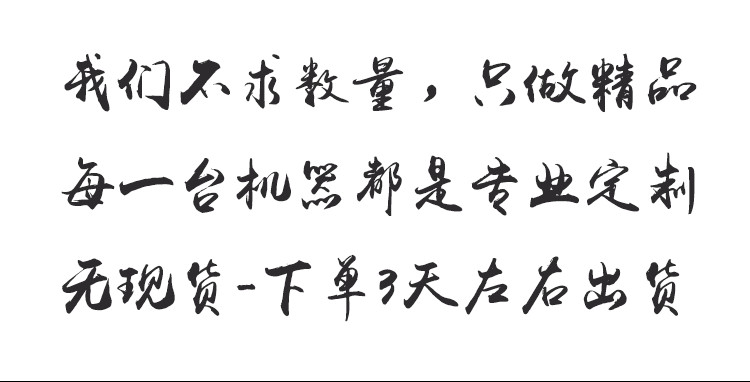 我们不求数量，只做精品
每一台机器都是专业定制
无现货-下单3天左右出货